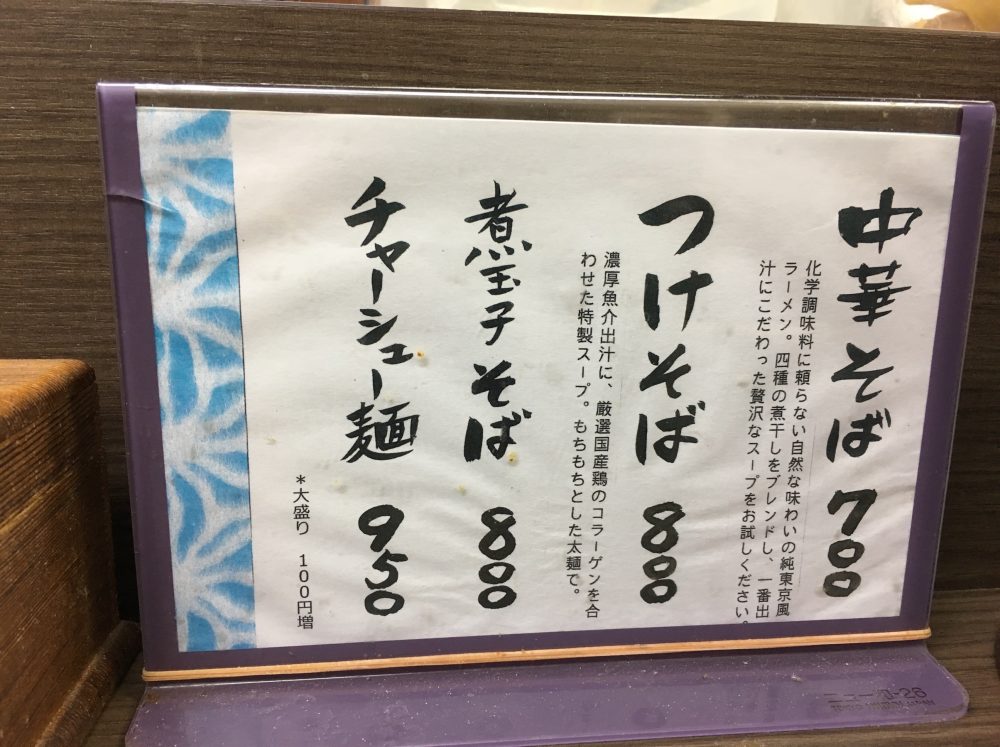 中華そば 700
化学調味料に頼らない自然な味わいの純東京風
ラーメン。四種の煮干しをブレンドし、一番出
汁にこだわった贅沢なスープをお試しください。
つけそば 800
濃厚魚介出汁に、厳選国産鶏のコラーゲンを合
わせた特製スープ。もちもちとした太麺で。
煮玉子そば 800
チャーシュー麺 950
*大盛り 100円増